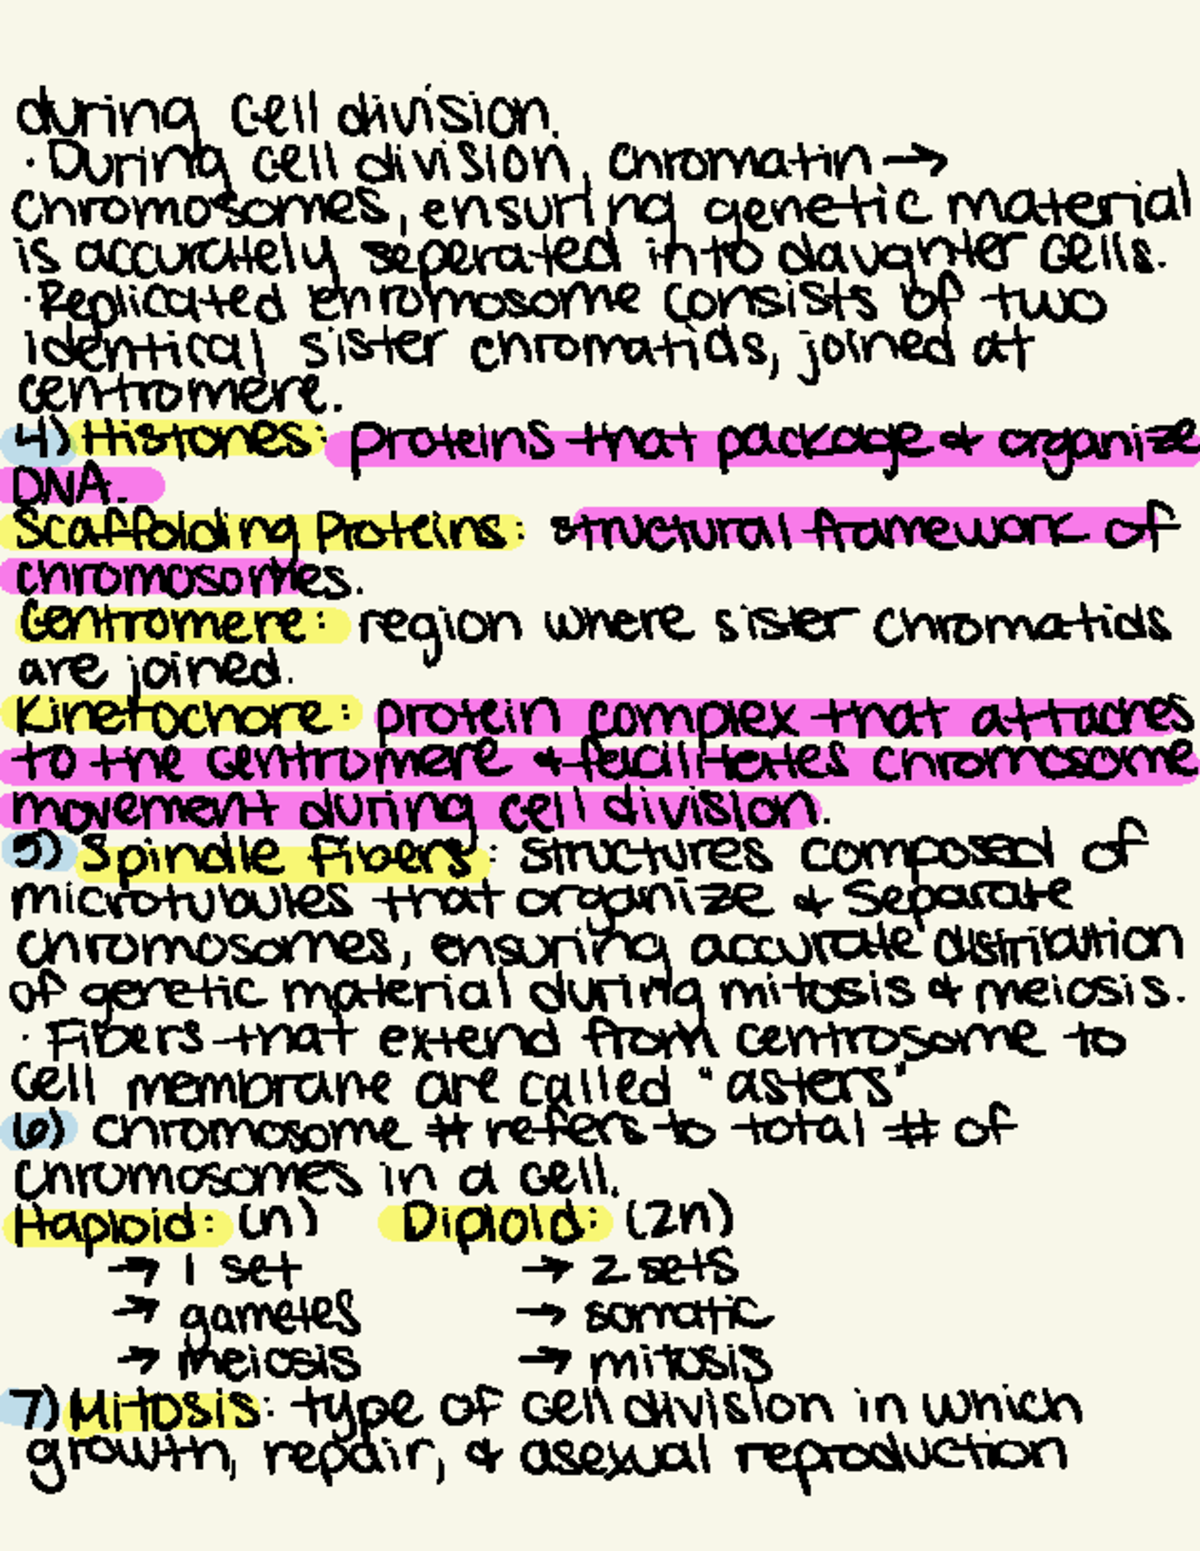 during cell division.
· During cell division, chromatin →
chromosomes, ensuring genetic material
is accurately seperated into daughter cells.
· Replicated chromosome consists of two
identical sister chromatids, joined at
centromere.
4) Histones: proteins that package & organize
DNA.
Scaffolding Proteins: structural framework of
chromosomes.
Centromere: region where sister chromatids
are joined.
Kinetochore: protein complex that attaches
to the centromere & facilitates chromosome
movement during cell division.
5) Spindle Fibers: structures composed of
microtubules that organize & separate
chromosomes, ensuring accurate distribution
of genetic material during mitosis & meiosis.
· Fibers that extend from centrosome to
cell membrane are called "asters"
6) chromosome # refers to total # of
chromosomes in a cell.
Haploid: (n) Diploid: (2n)
→ 1 set → 2 sets
→ gametes → somatic
→ meiosis → mitosis
7) Mitosis: type of cell division in which
growth, repair, & asexual reproduction